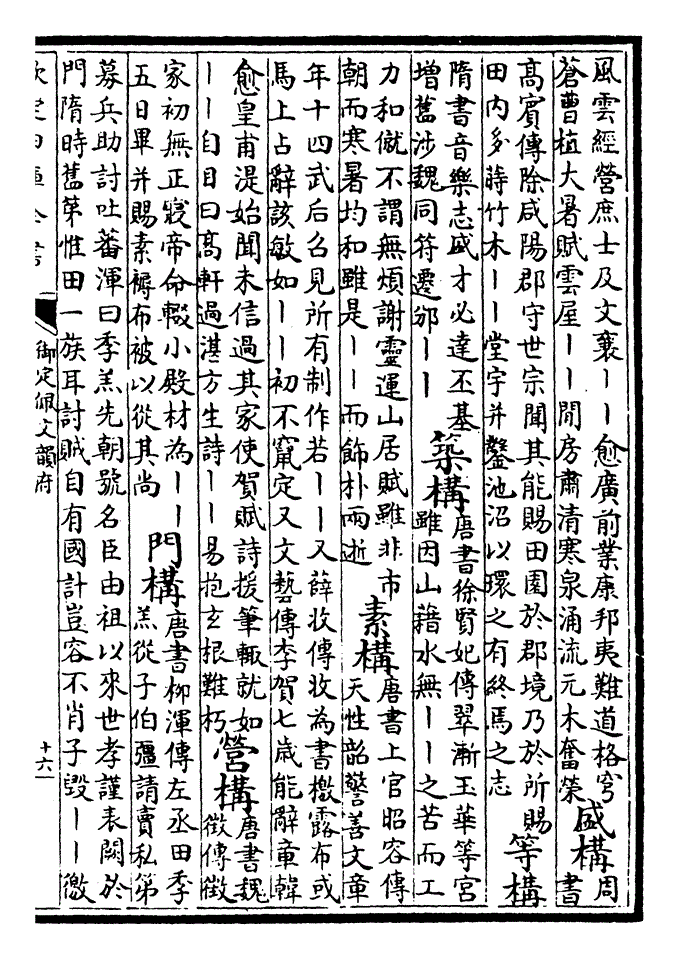 風雲經營庶士及文襄丨丨愈廣前業康邦夷難道格穹
蒼曹植大暑賦雲屋丨丨閒房肅清寒泉涌流元木奮榮
盛構
周
書
高賓傳除咸陽郡守世宗聞其能賜田園於郡境乃於所賜
田内多蒔竹木丨丨堂宇并鑿池沼以環之有終焉之志
等構
隋書音樂志盛才必達丕基
增舊涉魏同符遷邠丨丨
築構
唐書徐賢妃傳翠漸玉華等宮
雖因山藉水無丨丨之苦而工
力和僦不謂無煩謝靈運山居賦雖非市
朝而寒暑均和雖是丨丨而飾朴兩逝
素構
唐書上官昭容傳
天性韶警善文章
年十四武后召見所有制作若丨丨又薛收傳收為書檄露布或
馬上占辭該敏如丨丨初不竄定又文藝傳李賀七歲能辭章韓
愈皇甫湜始聞未信過其家使賀賦詩援筆輒就如
丨丨自目曰高軒過湛方生詩丨丨易抱玄根難朽
營構
唐書魏
徵傳徵
家初無正寢帝命輟小殿材為丨丨
五日畢并賜素褥布被以從其尚
門構
唐書柳渾傳左丞田季
羔從子伯彊請賣私第
募兵助討吐蕃渾曰季羔先朝號名臣由祖以來世孝謹表闕於
門隋時舊第惟田一族耳討賊自有國計豈容不肖子毀丨丨徼
欽定四庫全書
御定佩文韻府
十六